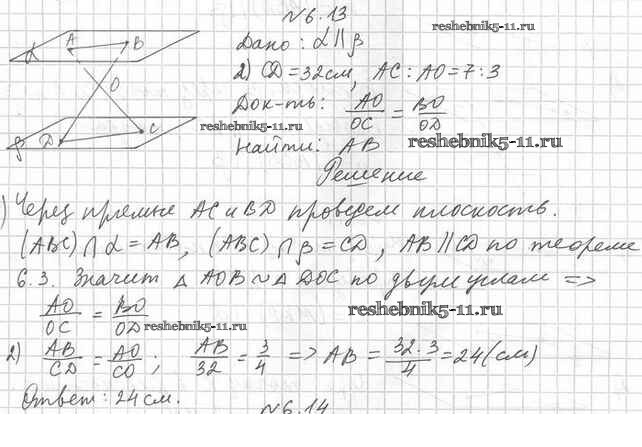 №6.13
reshebnik5-11.ru
α A B
Дано: α ∥ β
2) CD = 32 см, AC : AO = 7 : 3
O
Док-ть: AO/OC = BO/OD
reshebnik5-11.ru
reshebnik5-11.ru
β D C
Найти: AB
Решение
) Через прямые AC и BD проведем плоскость.
(ABC) ∩ α = AB, (ABC) ∩ β = CD, AB ∥ CD по теореме
6.3. Значит △ AOB ~ △ DOC по двум углам =>
AO/OC = BO/OD
reshebnik5-11.ru
reshebnik5-11.ru
2) AB/CD = AO/CO; AB/32 = 3/4 => AB = 32·3/4 = 24 (см)
Ответ: 24 см.
№6.14